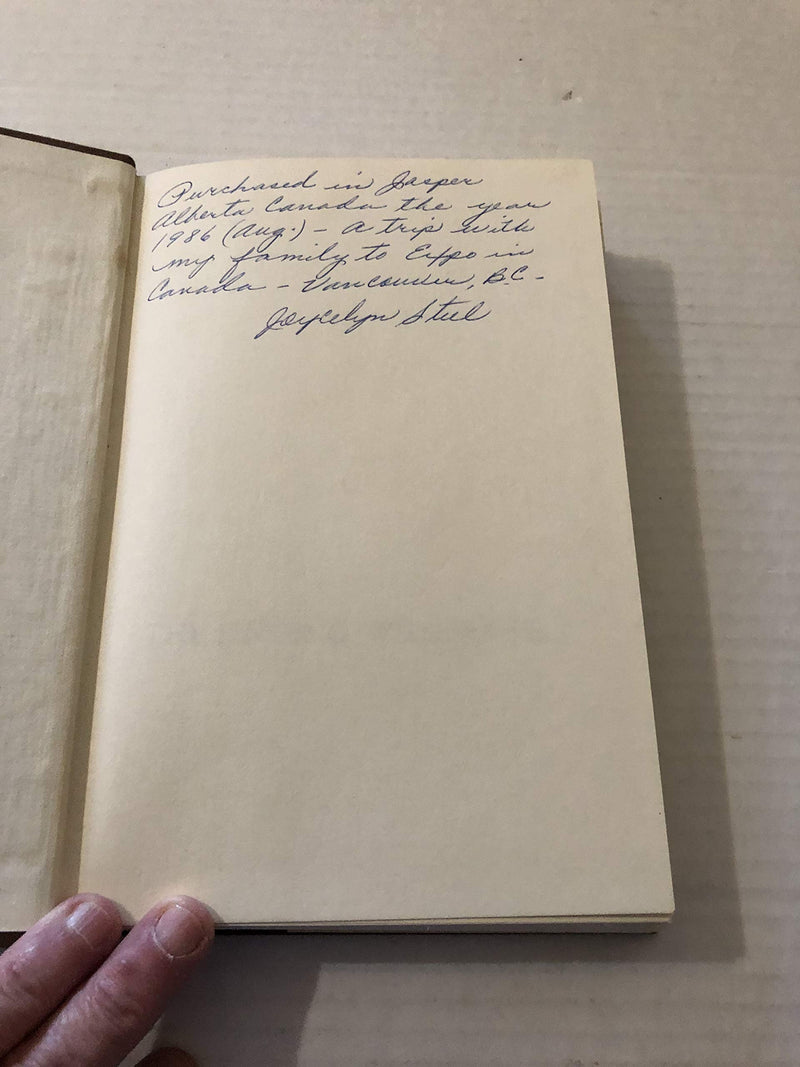 Purchased in Jasper
Alberta Canada the year
1986 (Aug.) - a trip with
my family to Expo in
Canada - Vancouver, B.C. -
Joycelyn Steel